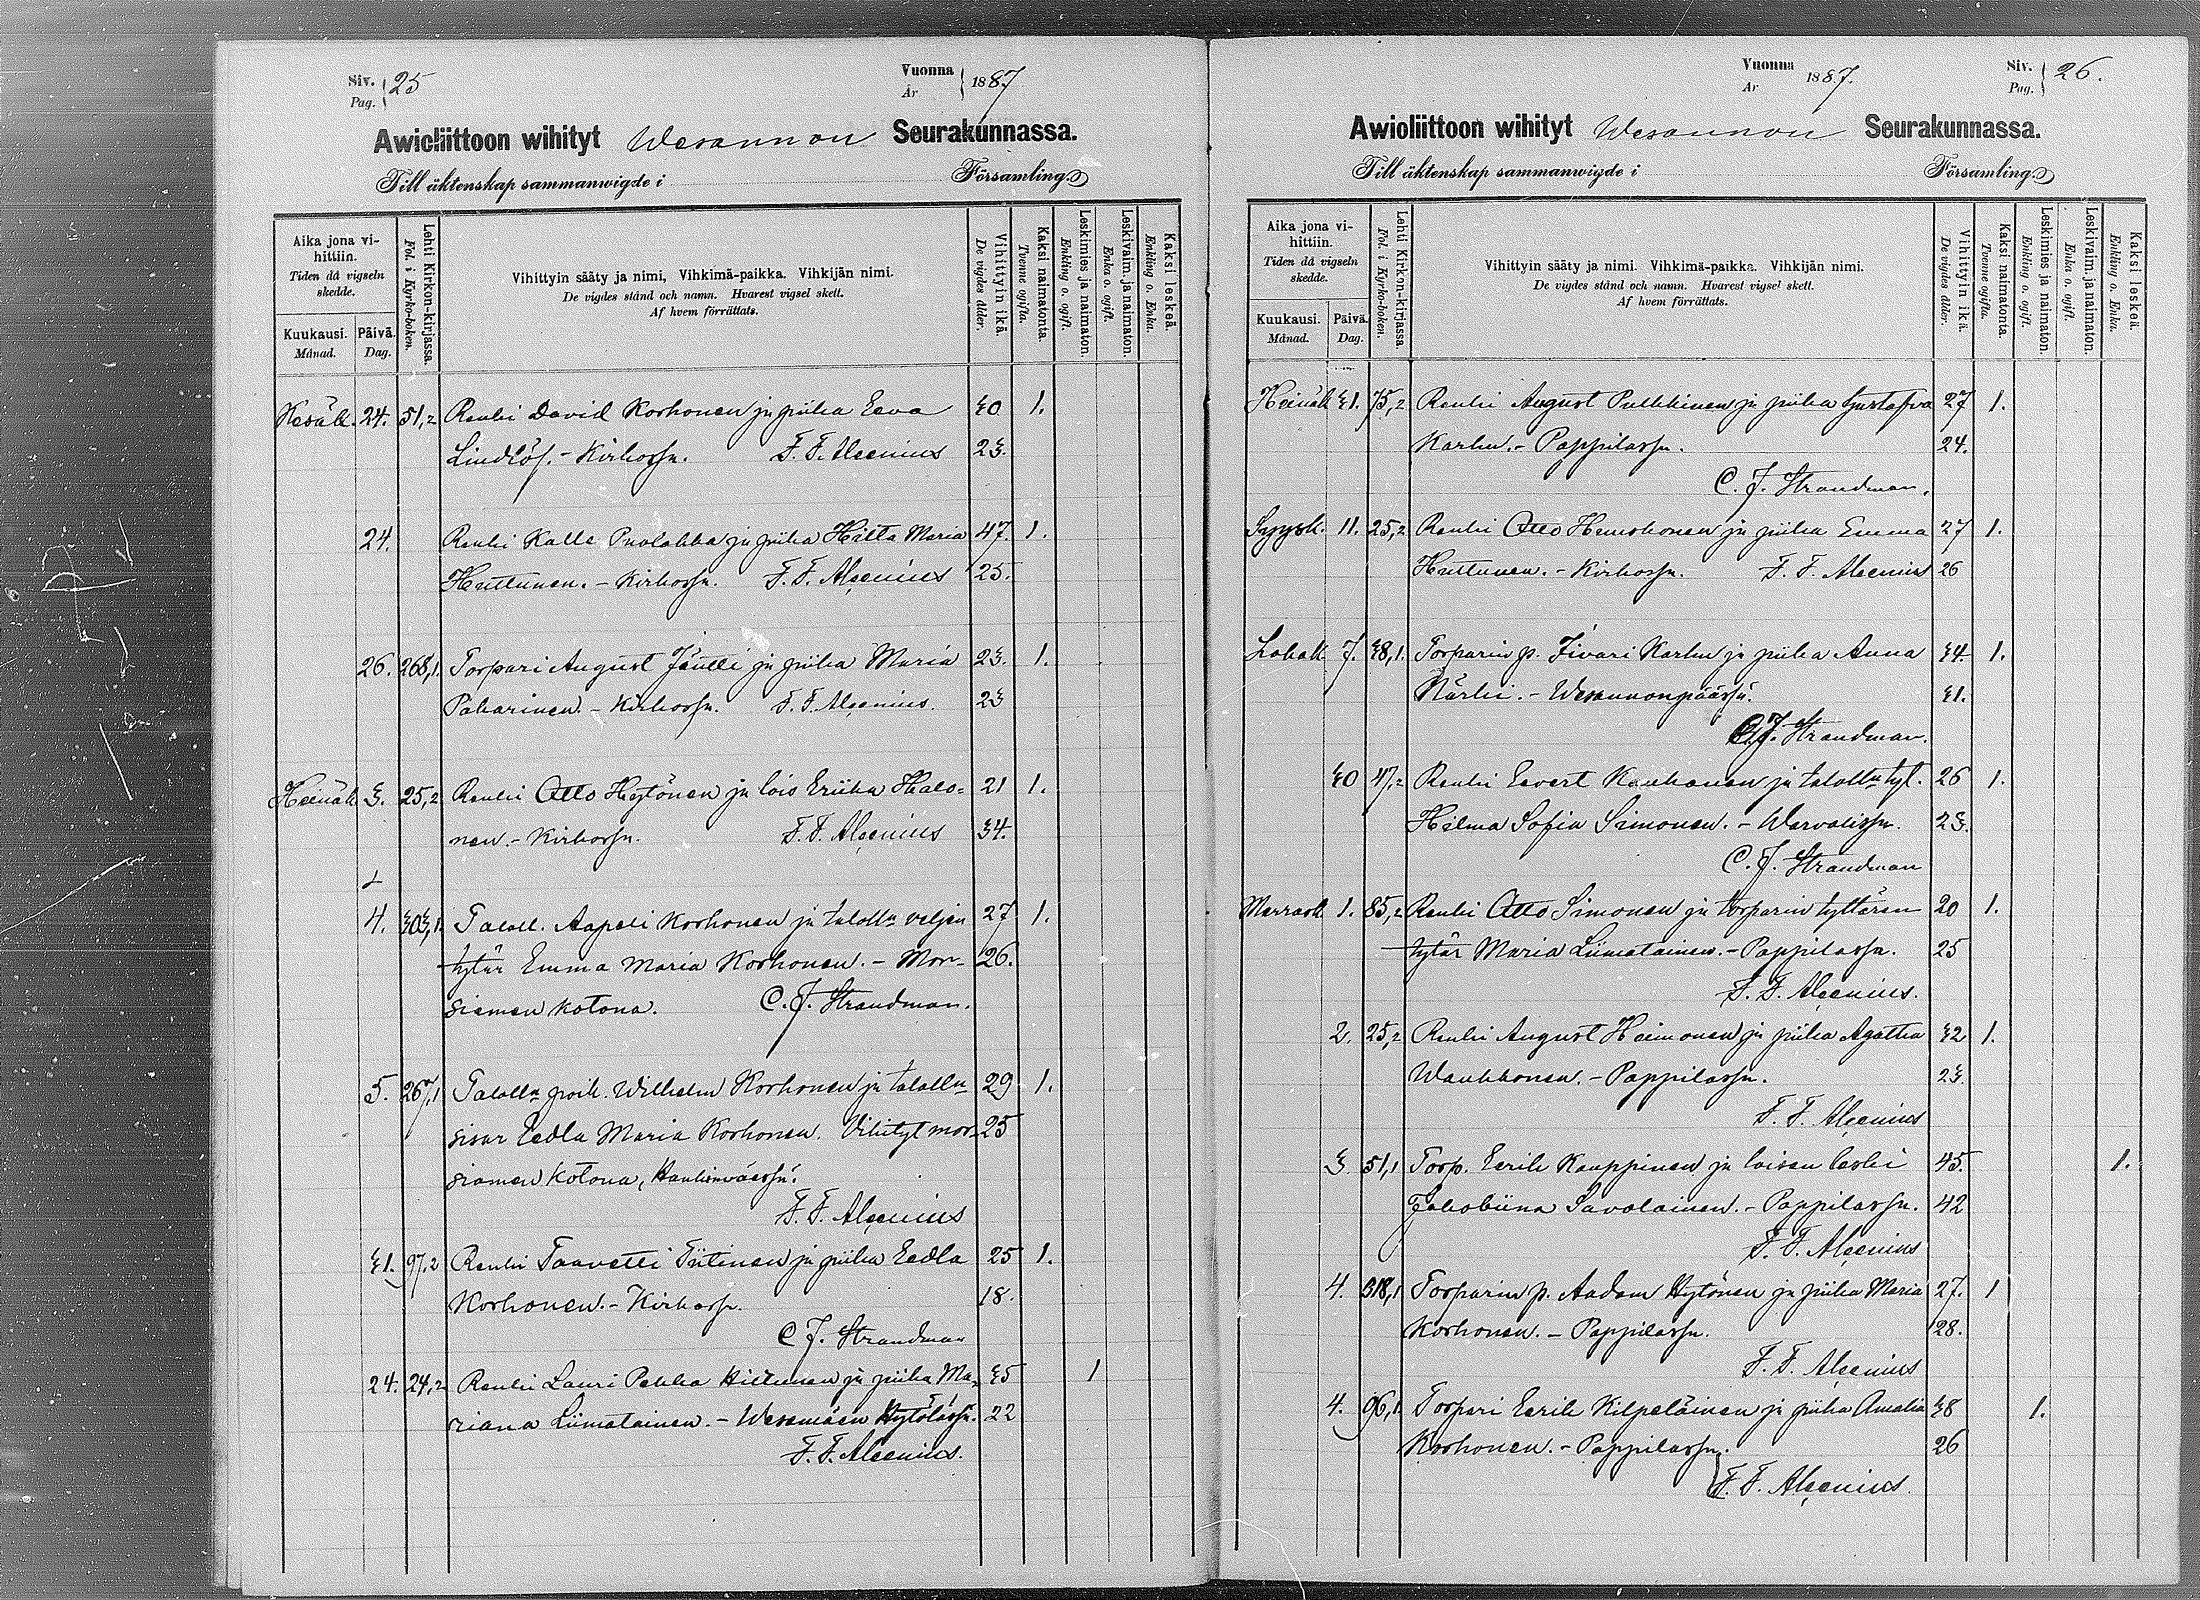 Siv. 25 Vuonna 1887
Pag. År
Awioliittoon wihityt Wesannon Seurakunnassa.
Till äktenskap sammanwigde i Församling.
Aika jona vi-
hittiin.
Tiden då vigseln
skedde.
Kuukausi. Päivä.
Månad. Dag.
Lehti Kirkon-kirjassa.
Fol. i Kyrko-boken.
Vihittyin sääty ja nimi, Vihkimä-paikka. Vihkijän nimi.
De vigdes stånd och namn. Hvarest vigsel skett.
Af hvem förrättats.
Vihittyin ikä.
De vigdes ålder.
Kaksi naimatonta.
Tvenne ogifta.
Leskimies ja naimaton.
Enkling o. ogift.
Leskivaim. ja naimaton.
Enka o. ogift.
Kaksi leskeä.
Enkling o. Enka.
Kesäk. 24. 51,2 Renki David Korhonen ja piika Eeva 30 1.
Lindlöf. - Kirkossa. F. F. Alcenius 23.
24. Renki Kalle Puolakka ja piika Hilta Maria 47. 1.
Huttunen. - Kirkossa. F. F. Alcenius 25.
26. 268,1. Torpari August Jäntti ja piika Maria 23. 1.
Pakarinen. - Kirkossa. F. F. Alcenius. 23
Heinäk 3. 25,2 Renki Otto Hytönen ja lois Eriika Halo- 21 1.
nen. - Kirkossa. F. F. Alcenius 34.
4. 303,1. Taloll. Aapeli Korhonen ja taloll:n veljen 27 1.
tytär Emma Maria Korhonen. - Mor- 26.
siamen kotona. C. J. Strandman.
5. 267,1 Taloll:n poik. Wilhelm Korhonen ja taloll:n 29 1.
sisar Eedla Maria Korhonen. Vihityt mor- 25
siamen kotona,
F. F. Alcenius
31. 97,2 Renki Taavetti Tiitinen ja piika Eedla 25 1.
Korhonen. - Kirkossa. 18.
C J. Strandman
24. 24,2 Renki Lauri Pekka Hiltunen ja piika Ma- 35 1
riana Liimatainen. - Wesamäen Hytölässä. 22
F. F. Alcenius.
Vuonna 1887. Siv. 26.
År Pag.
Awioliittoon wihityt Wesannon Seurakunnassa.
Till äktenskap sammanwigde i Församling.
Aika jona vi-
hittiin.
Tiden då vigseln
skedde.
Kuukausi. Päivä.
Månad. Dag.
Lehti Kirkon-kirjassa.
Fol. i Kyrko-boken.
Vihittyin sääty ja nimi. Vihkimä-paikka. Vihkijän nimi.
De vigdes stånd och namn. Hvarest vigsel skett.
Af hvem förrättats.
Vihittyin ikä.
De vigdes ålder.
Kaksi naimatonta.
Tvenne ogifta.
Leskimies ja naimaton.
Enkling o. ogift.
Leskivaim. ja naimaton.
Enka o. ogift.
Kaksi leskeä.
Enkling o. Enka.
Heinäk 31. 75,2 Renki August Pulkkinen ja piika Gustafva 27 1.
Karhu. - Pappilassa. 24.
C. J. Strandman.
Syysk. 11. 25,2 Renki Otto ja piika Emma 27 1.
Huttunen. - Kirkossa. F. F. Alcenius 26
Lokak 7. 38,1. Torparin p. Iivari Karhu ja piika Anna 34. 1.
Närhi. - Wesannonpäässä. 31.
C. J. Strandman.
30 47,2 Renki Eevert Kauhanen ja taloll:n tyt. 26 1.
Hilma Sofia Simonen. - 23.
C. J. Strandman
Marrask 1. 85,2 Renki Otto Simonen ja torparin tyttären 20 1.
tytär Maria Liimatainen. - Pappilassa. 25
F. F. Alcenius.
2. 25,2 Renki August Heimonen ja piika Agatha 32 1.
Waukkonen. - Pappilassa. 23.
F. F. Alcenius
3. 51,1 Torp. Eerik Kauppinen ja loisen leski 45. 1.
Jakobiina Savolainen. - Pappilassa. 42
F. F. Alcenius
4. 318,1 Torparin p. Aadam Hytönen ja piika Maria 27. 1
Korhonen. - Pappilassa. 28.
F. F. Alcenius
4. 96,1 Torpari Eerik Kilpeläinen ja piika Amalia 38 1.
Korhonen. - Pappilassa. 26
F. F. Alcenius.